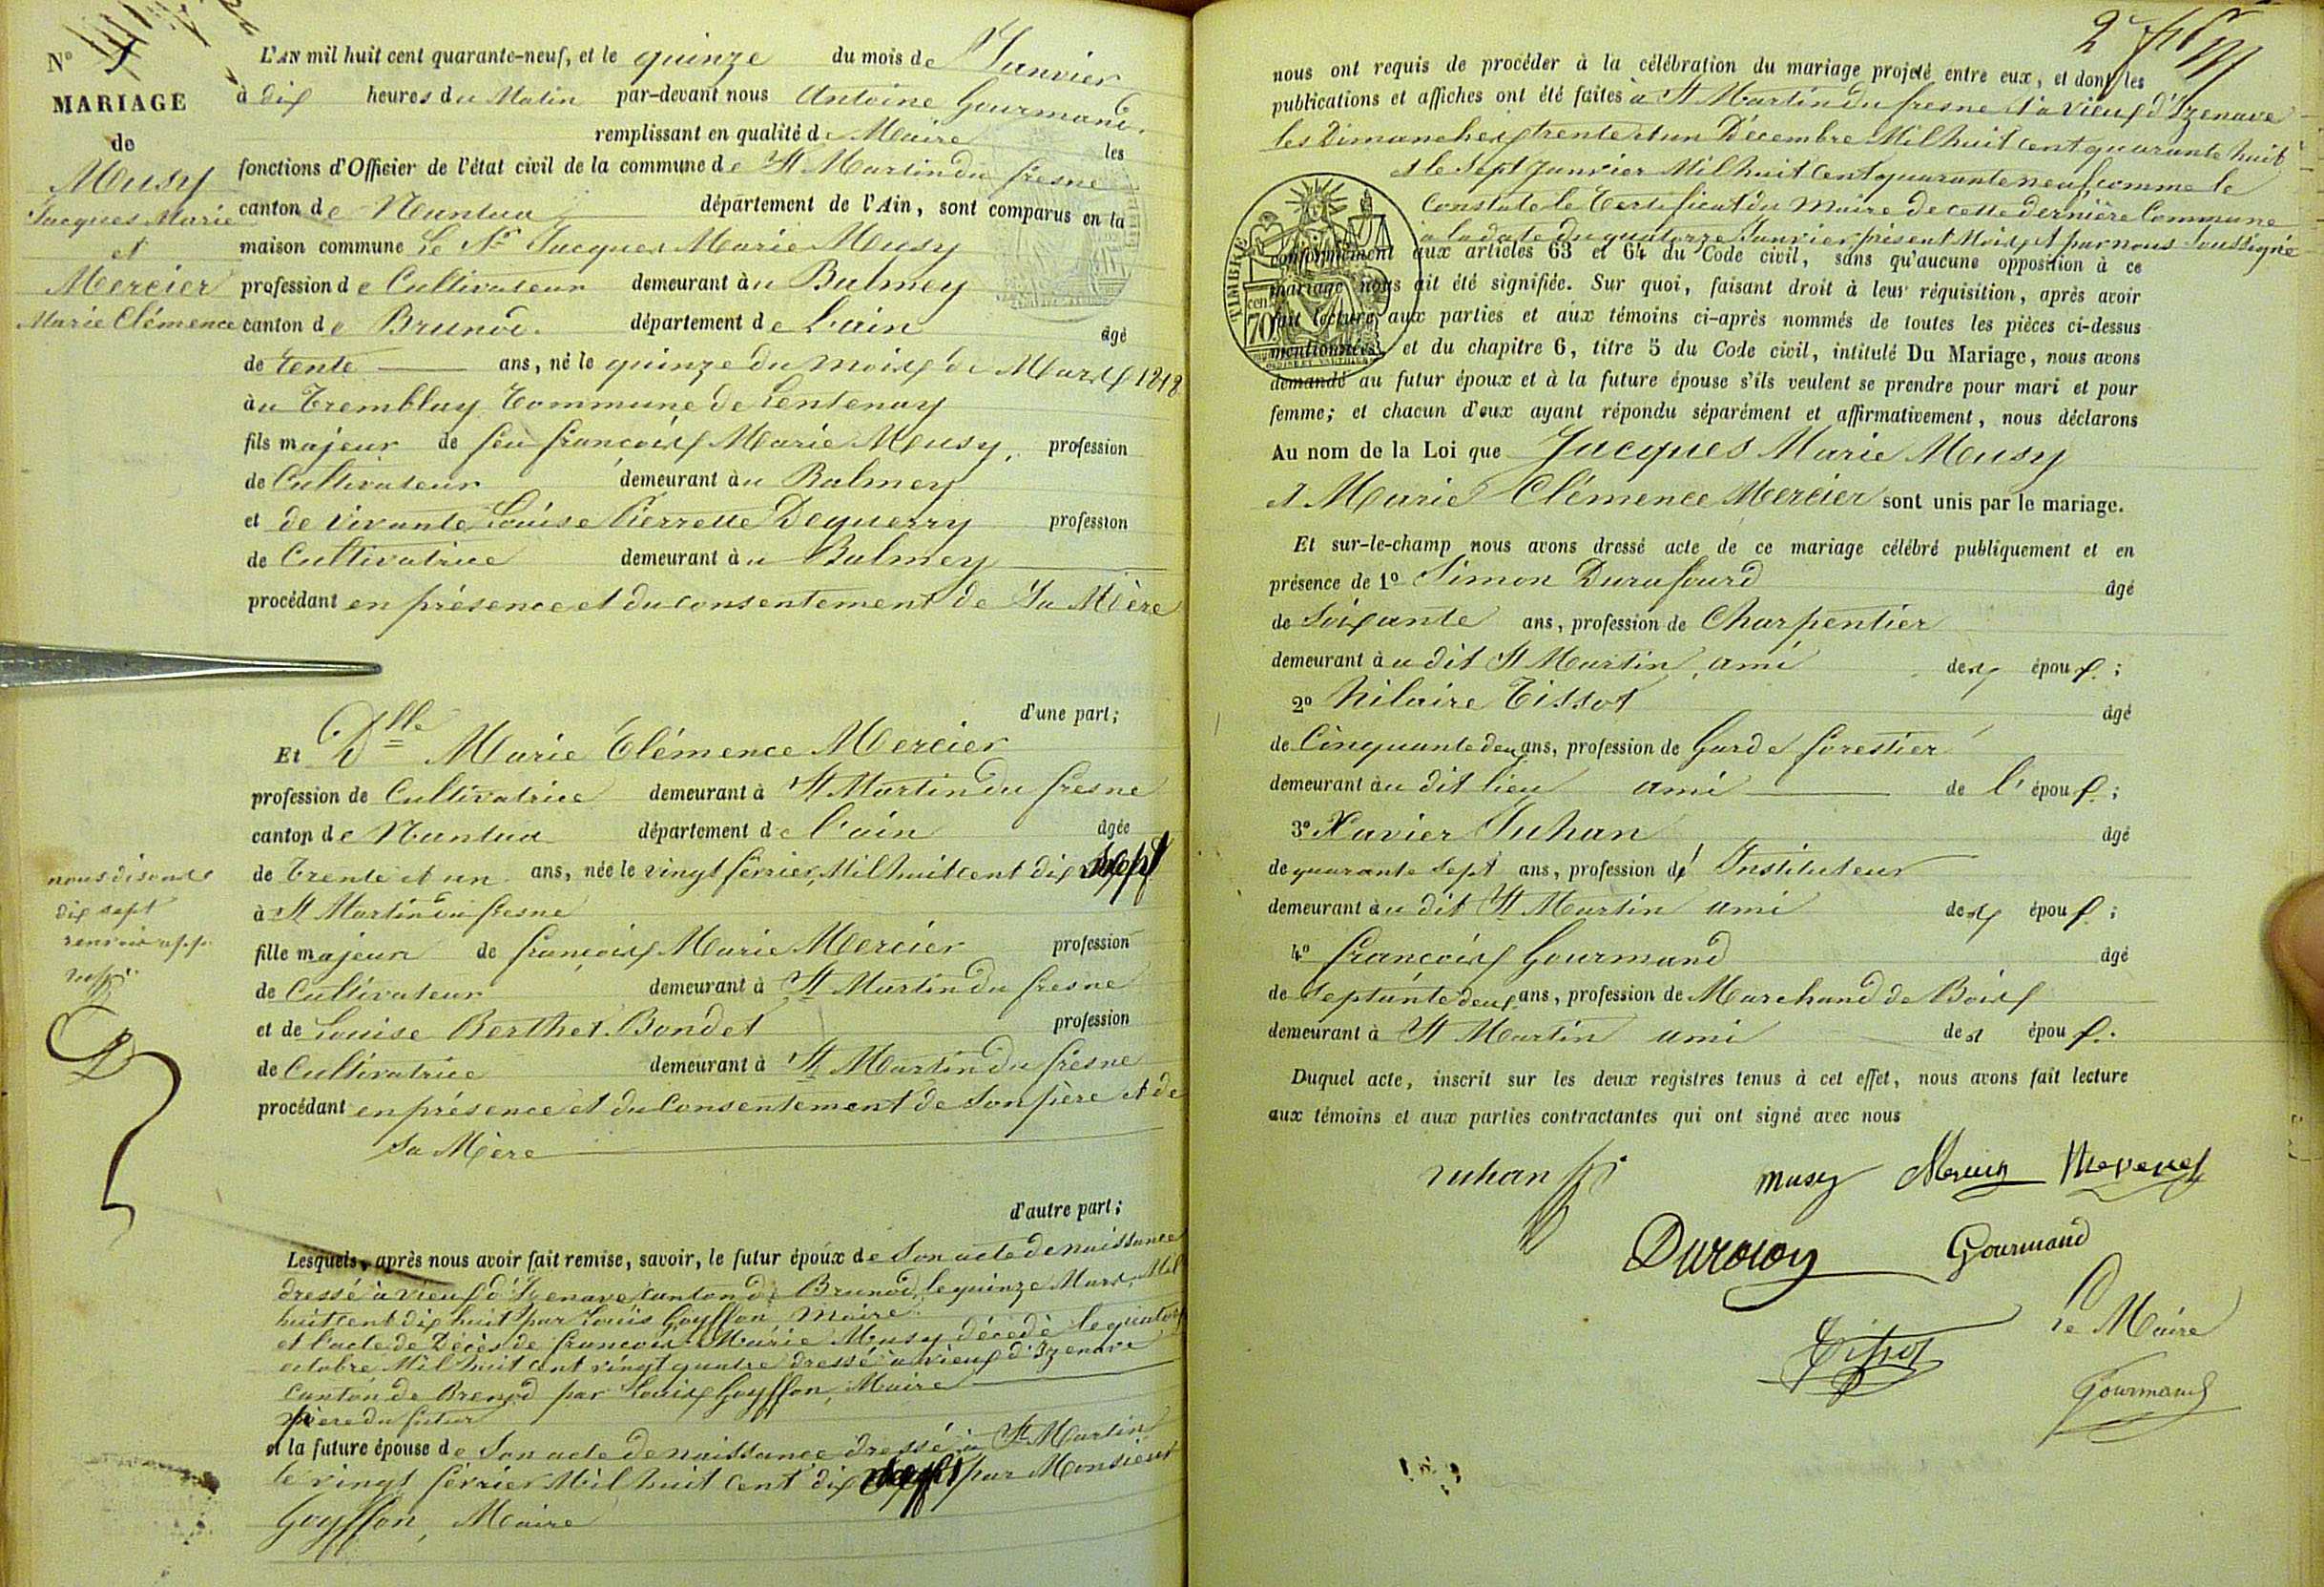 N° 1
MARIAGE
de
Musy
Jacques Marie
et
Mercier
Marie Clémence
L'AN mil huit cent quarante-neuf, et le quinze du mois de Janvier
à dix heures du Matin par-devant nous Antoine Gourmand
remplissant en qualité de Maire les
fonctions d'Officier de l'état civil de la commune de St Martin du fresne
canton de Nantua département de l'Ain, sont comparus en la
maison commune Le Sr Jacques Marie Musy
profession de Cultivateur demeurant au Balmey
canton de Brunod département de l'ain âgé
de tente ans, né le quinze du mois de Mars 1818
au Tremblay Commune de Lentenay
fils majeur de feu françois Marie Musy, profession
de Cultivateur demeurant au Balmey
et de vivante Louise Pierrette Deguerry profession
de Cultivatrice demeurant au Balmey
procédant en présence et du consentement de Sa Mère
d'une part;
Et Dlle Marie Clémence Mercier
profession de Cultivatrice demeurant à St Martin du fresne
canton de Nantua département de l'ain âgée
de trente et un ans, née le vingt février Mil huit cent dix sept
à St Martin du fresne
fille majeure de françois Marie Mercier profession
de Cultivateur demeurant à St Martin du fresne
et de Louise Berthet Bondet profession
de Cultivatrice demeurant à St Martin du fresne
procédant en présence et du Consentement de Son père et de
Sa Mère
nous disons
dix sept
d'autre part;
Lesquels, après nous avoir fait remise, savoir, le futur époux de Son acte de naissance
dressé à vieux d'Izenave canton de Brunod, le quinze Mars Mil
huit cent dix huit par Louis Goyffon, Maire
et l'acte de Décès de françois Marie Musy décédé le quatorze
octobre Mil huit cent vingt quatre dressé à vieux d'Izenave
canton de Brenod par Louis Goyffon, Maire
père du futur
et la future épouse de Son acte de naissance dressé à St Martin
le vingt février Mil huit Cent dix sept par Monsieur
Goyffon, Maire
2e
nous ont requis de procéder à la célébration du mariage projeté entre eux, et dont les
publications et affiches ont été faites à St Martin du fresne et à vieux d'Izenave
les Dimanches trente et un Décembre Mil huit Cent quarante huit
et le Sept Janvier Mil huit Cent quarante neuf comme le
Constate le Certificat du Maire de cette dernière Commune
à la date du quatorze Janvier présent Mois, et par nous Soussigné
conformément aux articles 63 et 64 du Code civil, sans qu'aucune opposition à ce
mariage nous ait été signifiée. Sur quoi, faisant droit à leur réquisition, après avoir
fait lecture, aux parties et aux témoins ci-après nommés de toutes les pièces ci-dessus
mentionnées, et du chapitre 6, titre 5 du Code civil, intitulé Du Mariage, nous avons
demandé au futur époux et à la future épouse s'ils veulent se prendre pour mari et pour
femme; et chacun d'eux ayant répondu séparément et affirmativement, nous déclarons
Au nom de la Loi que Jacques Marie Musy
et Marie Clémence Mercier sont unis par le mariage.
Et sur-le-champ nous avons dressé acte de ce mariage célébré publiquement et en
présence de 1° Simon Durafourd âgé
de Soixante ans, profession de Charpentier
demeurant au dit St Martin, ami des époux;
2° hilaire Tissot âgé
de Cinquante deux ans, profession de Garde forestier
demeurant au dit lieu ami de l' époux;
3° Xavier Juhan âgé
de quarante Sept ans, profession d' Instituteur
demeurant au dit St Martin ami des époux;
4° françois Gourmand âgé
de Septante deux ans, profession de Marchand de Bois
demeurant à St Martin ami des époux.
Duquel acte, inscrit sur les deux registres tenus à cet effet, nous avons fait lecture
aux témoins et aux parties contractantes qui ont signé avec nous
Juhan musy Mercier
Gourmand
Tissot
Le Maire
Gourmand
TIMBRE
70